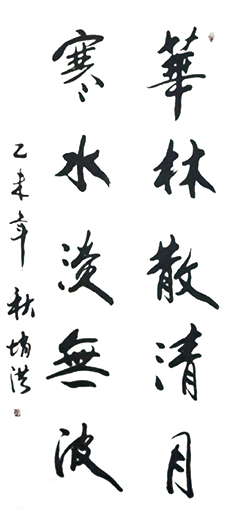 華林散清月
寒水淡無波
乙未年秋洪